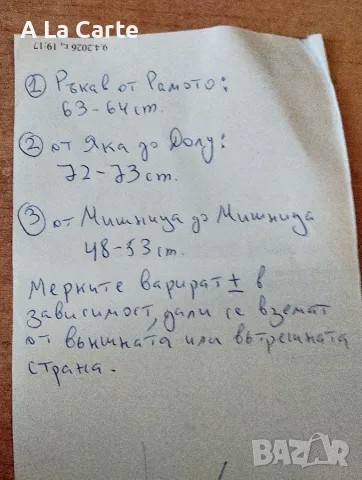 A La Carte
9.4.2026 г., 19:17
1 Ръкав от Рамото:
63-64 cm.
2 от Яка до Долу:
72-73 cm.
3 от Мишница до Мишница
48-53 cm.
Мерките варират ± в
зависимост, дали се вземат
от външната или вътрешната
страна.
BAZAR